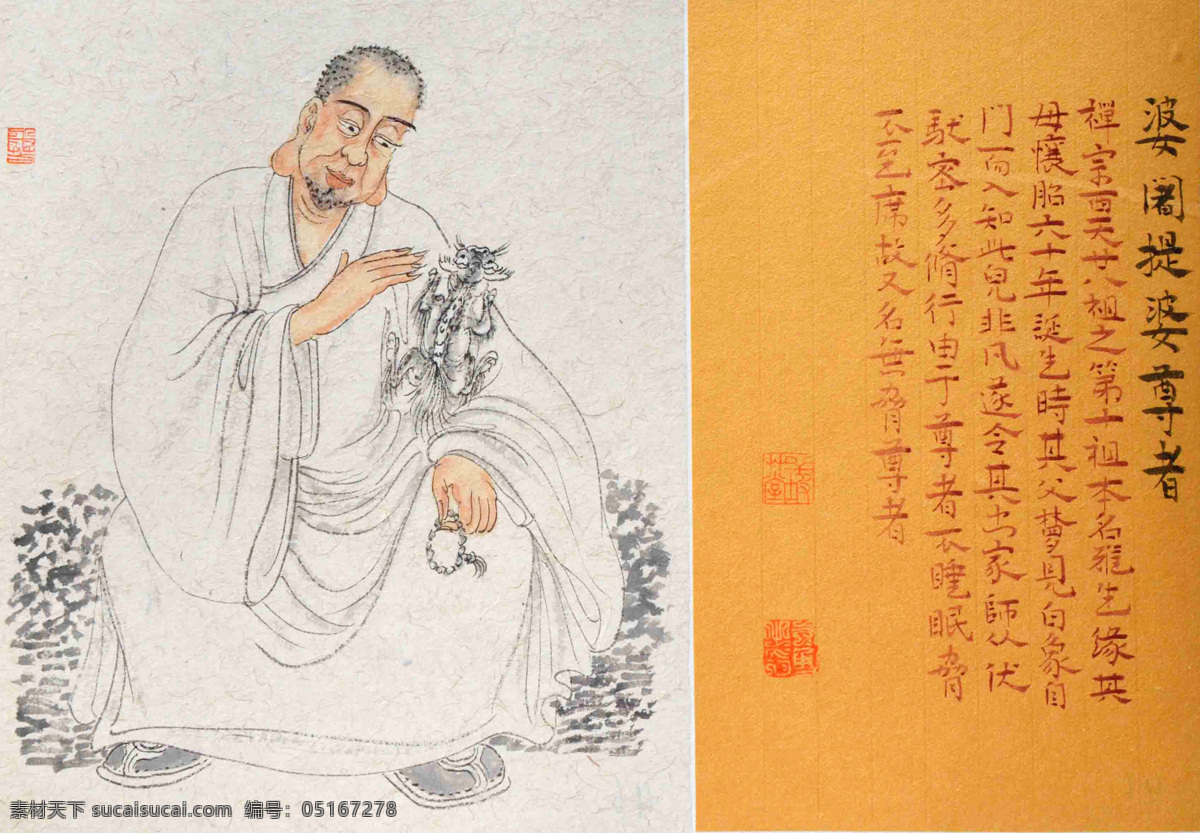 婆闍提婆尊者
禅宗西天廿八祖之第十祖本名难生缘其
母懷胎六十年誕生時其父夢見白象自
門而入知此兒非凡遂令其出家師从伏
馱密多脩行由于尊者不睡眠脅
不至席故又名無脅尊者
素材天下 sucaisucai.com 编号：05167278